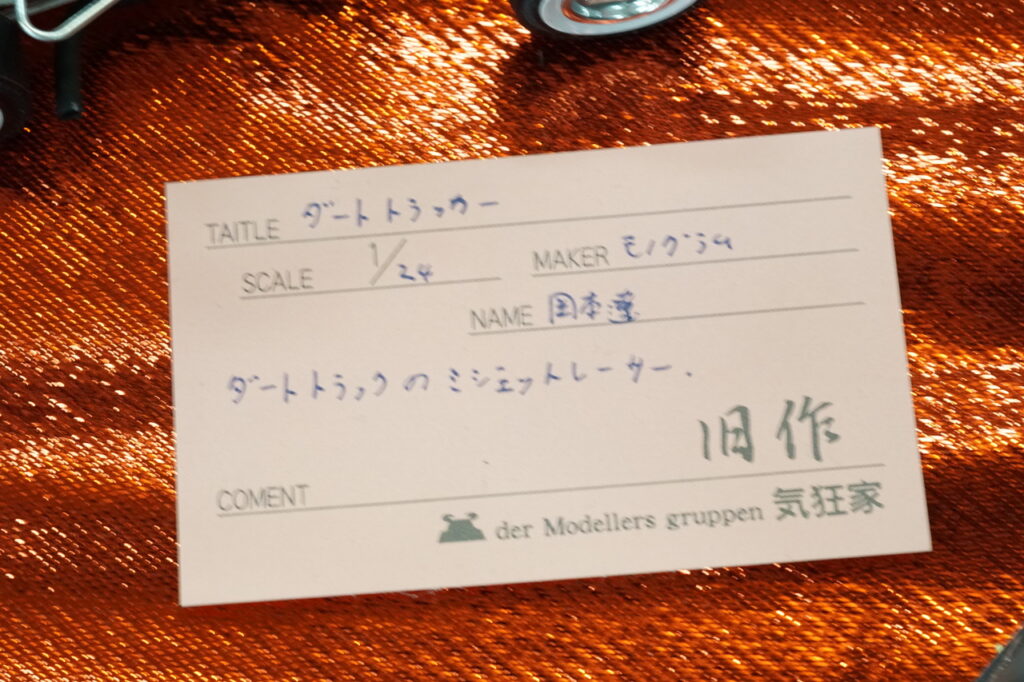 TAITLE ダートトラッカー
SCALE 1/24 MAKER モノグラム
NAME 岡本
ダートトラックのミジェットレーサー.
旧作
COMENT
der Modellers gruppen 気狂家